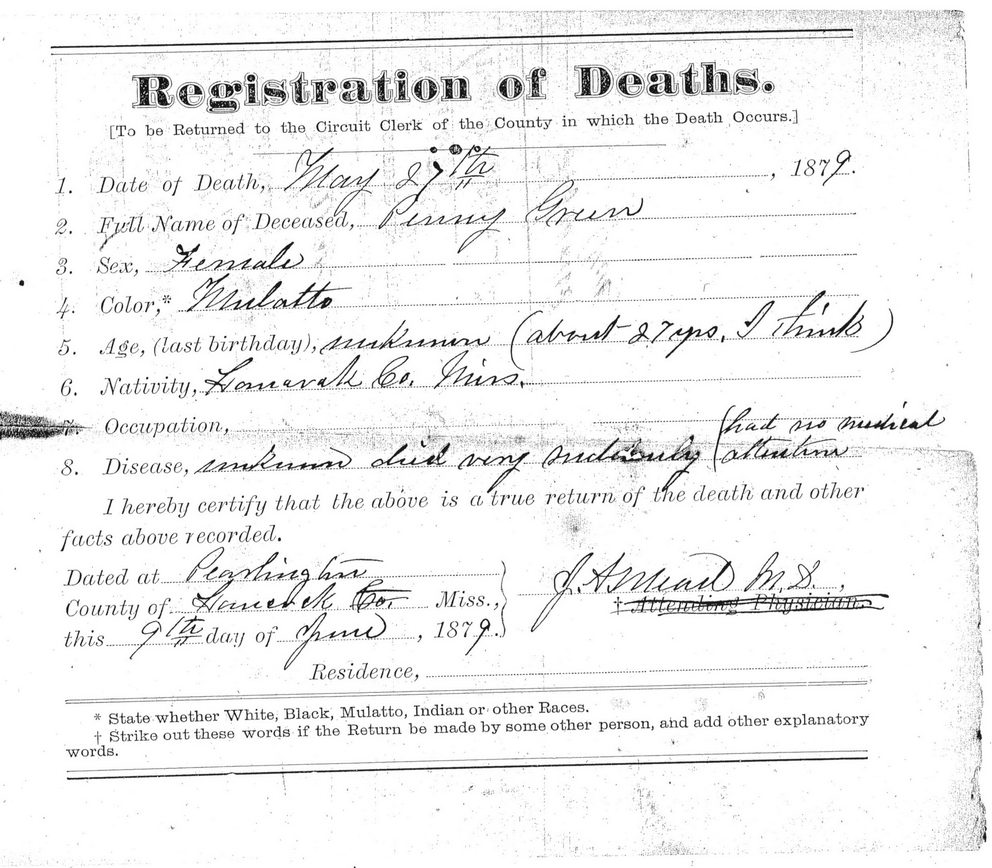 Registration of Deaths.
[To be Returned to the Circuit Clerk of the County in which the Death Occurs.]
1. Date of Death, May 27th, 1879.
2. Full Name of Deceased, Penny Green
3. Sex, Female
4. Color,* Mulatto
5. Age, (last birthday), unknown (about 27 yrs, I think)
6. Nativity, Hancock Co. Miss.
7. Occupation,
(had no medical
8. Disease, unknown died very suddenly attention
I hereby certify that the above is a true return of the death and other
facts above recorded.
Dated at Pearlington
County of Hancock Co. Miss.,
J. A. Mead M.D.,
† Attending Physician.
this 9th day of June, 1879.
Residence,
* State whether White, Black, Mulatto, Indian or other Races.
† Strike out these words if the Return be made by some other person, and add other explanatory
words.